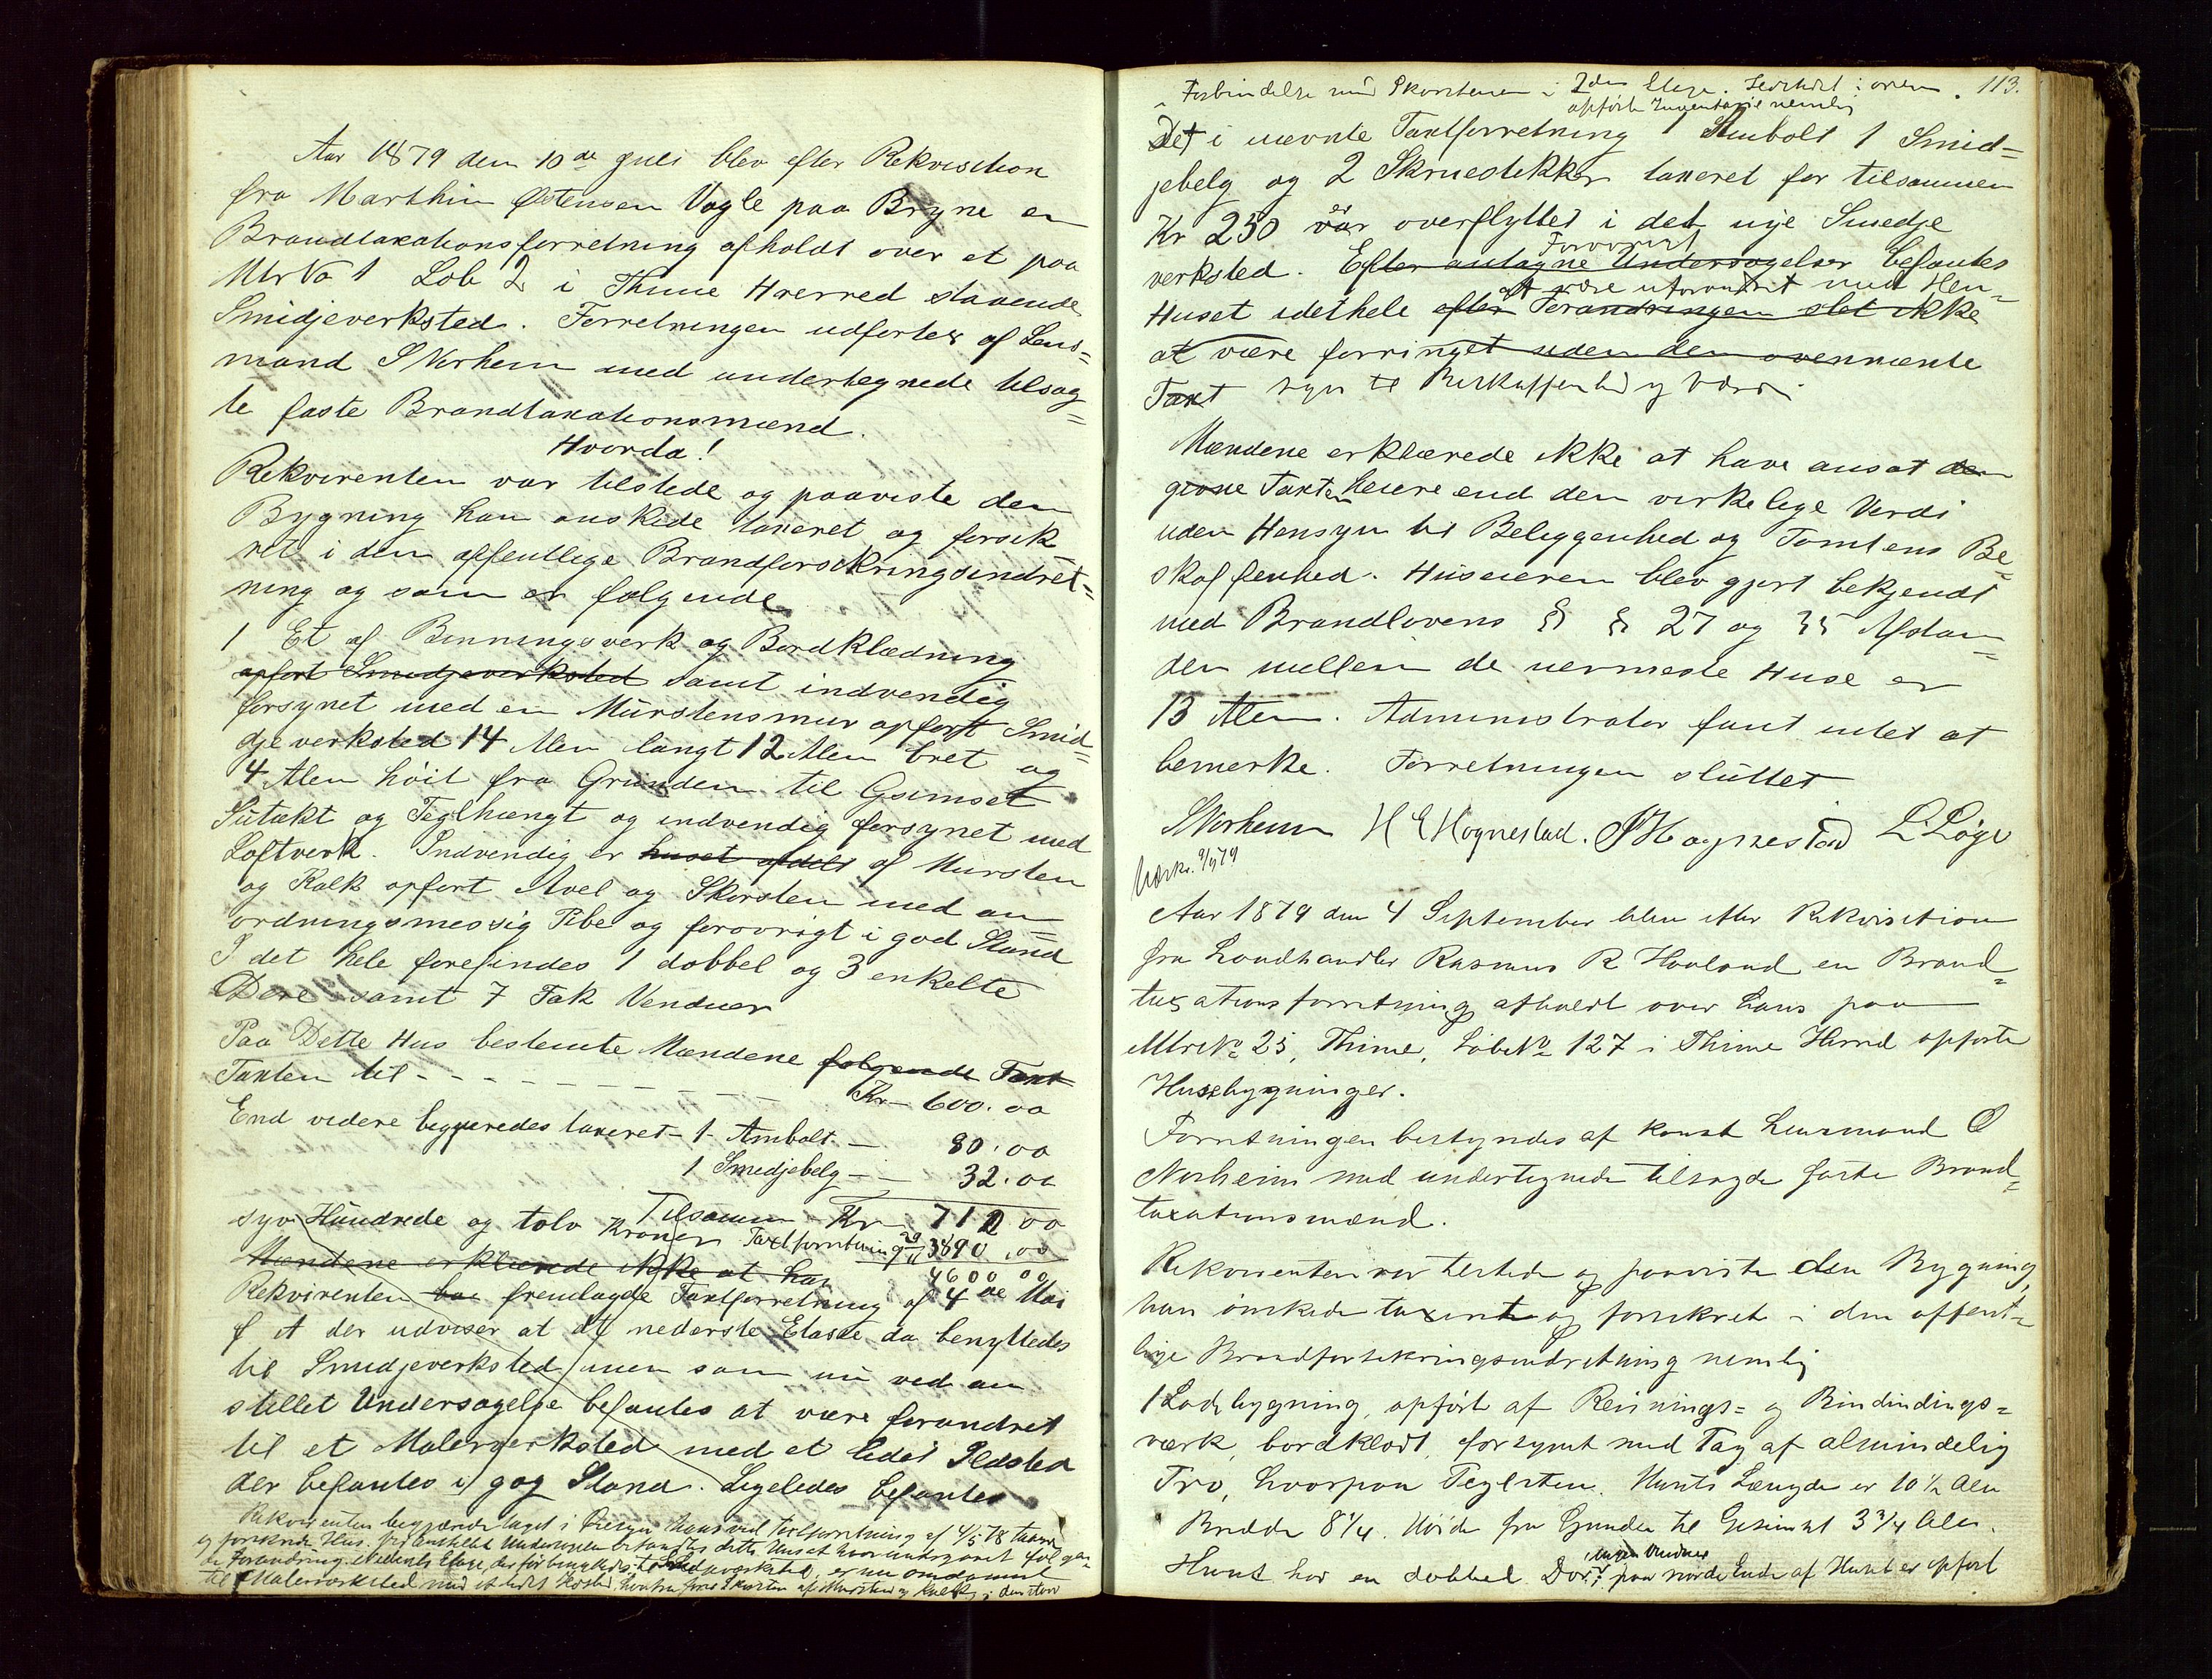 Aar 1879 den 10de Juli blev efter Rekvisition
fra Marthin Østensen Vagle paa Bryne en
Brandtaxationsforretning afholdt over et paa
Mtr No 1 Løb 2 i Thime Hærred staaende
Smidjeverksted. Forretningen udførtes af Lens=
mand S Norhem med undertegnede tilsag=
te faste Brandtaxationsmænd.
Hvorda!
Rekvirenten var tilstede og paaviste den
Bygning han ønskede taxeret og forsik
ret i den offentlige Brandforsikringsindret=
ning og som er følgende
1 Et af Binningsverk og Bordklædning
opført Smedjeverksted samt indvendig
forsynet med en Mürstensmur opført Smid=
dje verksted 14 Alen langt 12 Alen bret og
4 Alen høit fra Grunden til Gsimset
Sutækt og Teglhængt og indvendig forsynet med
Loftverk. Indvendig er huset afdelt af Mursten
og Kalk opført Avel og Skorsten med an=
ordningsmessig Pibe og forøvrigt i god Stand
I det hele forefindes 1 dobbel og 3 enkelte
Døre samt 7 Fak Venduer
Paa Dette Hus bestemte Mændene følgende Taxt
Taxten til - - - - - - - - Kr - 600.00
End videre begjæredes taxeret - 1 - Ambolt - 80.00
1 Smedjebelg - - 32.00
Tilsamm Kr 712 00
syv Hundrede og tolv Kroner Taxtforretning 29/11 3890.00
4600 00
Mændene erklærede ikke at har
Rekvirenten har fremlagde Taxtforretning af 4de Mai
f A der udviser at dt nederste Etaste da benyttedes
til Smedjeverksted men som nu ved an
stillet Undersøgelse befantes at være forandret
til et Malerverksted med et lidet Ildsted
der befantes i gog Stand. Ligeledes befantes
Rekvirenten begjærede taget i Øiesyn hans ved Taxtforretning af 4/5 78 taxere
og forsikrede Hus. Ved anstillet Undersøgelse befandtes dette Huset hvor undergaaet følgen
de Forandring: Nederste Etage, der før benyttedes til Smedjeværksted, er nu omdannet
til Malerværksted med et lidet Ildsted hvorfra fører Skorsten af Mursten og Kalk i den store
113.
Forbindelse med Skorstenen i 2den Etage.
opførte Inventarie nemlig
Det i nævnte Taxtforretning 1 Ambolt 1 Smid=
jebelg og 2 Skruestikker taxeret for tilsammen
Kr 250 var er overflyttet i det nye Smedje
verksted. Forøvrigt Efter antagne Undersøgelser befantes
at være uforandret med Hen=
Huset idethele efter Forandringen slet ikke
at være forringet uden den ovennænte
Taxt syn til Beskaffenhed og Værdi.
Mændene erklærede ikke at have ansat den
givne Taxten heiere end den virkelige Verdi
uden Hensyn til Beliggenhed og Tomtens Be=
skaffenhed. Huseieren blev gjort bekjendt
med Brandlovens § § 27 og 35 Afstan=
den mellem de nermeste Huse er
13 Alen. Administrator fant intet at
bemerke. Forretningen sluttet
SNorhem H E Hognestad. J Hognestad L Løge
Mærk. 9/9 79
Aar 1879 den 4 September blev efter Rekvisition
fra Landhandler Rasmus R Haaland en Brand=
taxationsforretning afholdt over hans paa
Mtr No 25, Thime, Løbe No 127 i Thime Herred opførte
Husebygninger.
Forretningen bestyrdes af konst Lensmand O
Norheim med undertegnede tilsagde faste Brand=
taxationsmænd.
Rekvirenten var tilstede og paaviste den Bygning,
han ønskede taxeret og forsikret i den offent=
lige Brandforsikringsindretning nemlig
1 Ladebygning, opført af Reisnings= og Bindindings=
værk, bordklædt, forsynet med Tag af almindelig
Tro, hvorpaa Teglsten. Husets Længde er 10 1/2 Alen
Bredde 8 1/4. Høide fra Grunden til Gesimset 3 3/4 Alen.
ingen Vinduer
Huset har en dobbel Dør; paa nordre Ende af Huset er opført